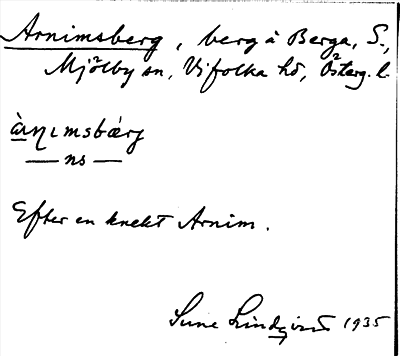 Arnimsberg, berg å Berga, S.,
Mjölby sn, Vifolka hd, Österg. l.
àṇımsbǽrj
— ns —
Efter en knekt Arnim.
Sune Lindqvist 1935